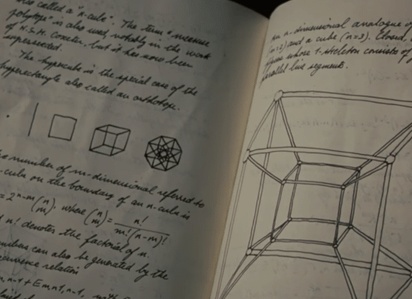 also called a "n-cube". The term "measure
polytope" is also used, notably in the work
of H.S.M. Coxeter, but it has now been
superseded.
The hypercube is the special case of the
hyperrectangle also called an orthotope.
number of m-dimensional referred to
-cube on the boundary of an n-cube is
= 2^{n-m} (n m), where (n m) = n! / m!(n-m)!
n! denotes the factorial of n.
numbers can also be generated by the
recurrence relation
an n-dimensional analogue of
(n=2) and a cube (n=3). Closed,
figure whose 1-skeleton consists of
parallel line segments.